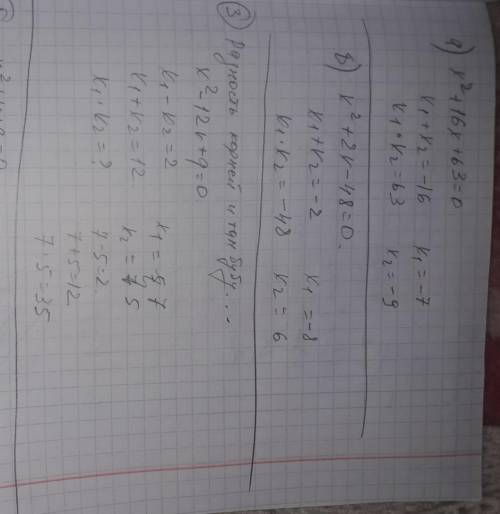 а) x²+16x+63=0
x₁+x₂=-16 x₁=-7
x₁·x₂=63 x₂=-9
в) x²+2x-48=0.
x₁+x₂=-2 x₁=-8
x₁·x₂=-48 x₂=6
③ Разность корней и тип ...
x²-12x+q=0
x₁-x₂=2 x₁=7
x₁+x₂=12 x₂=5
x₁·x₂=? 7-5=2
7+5=12
7·5=35